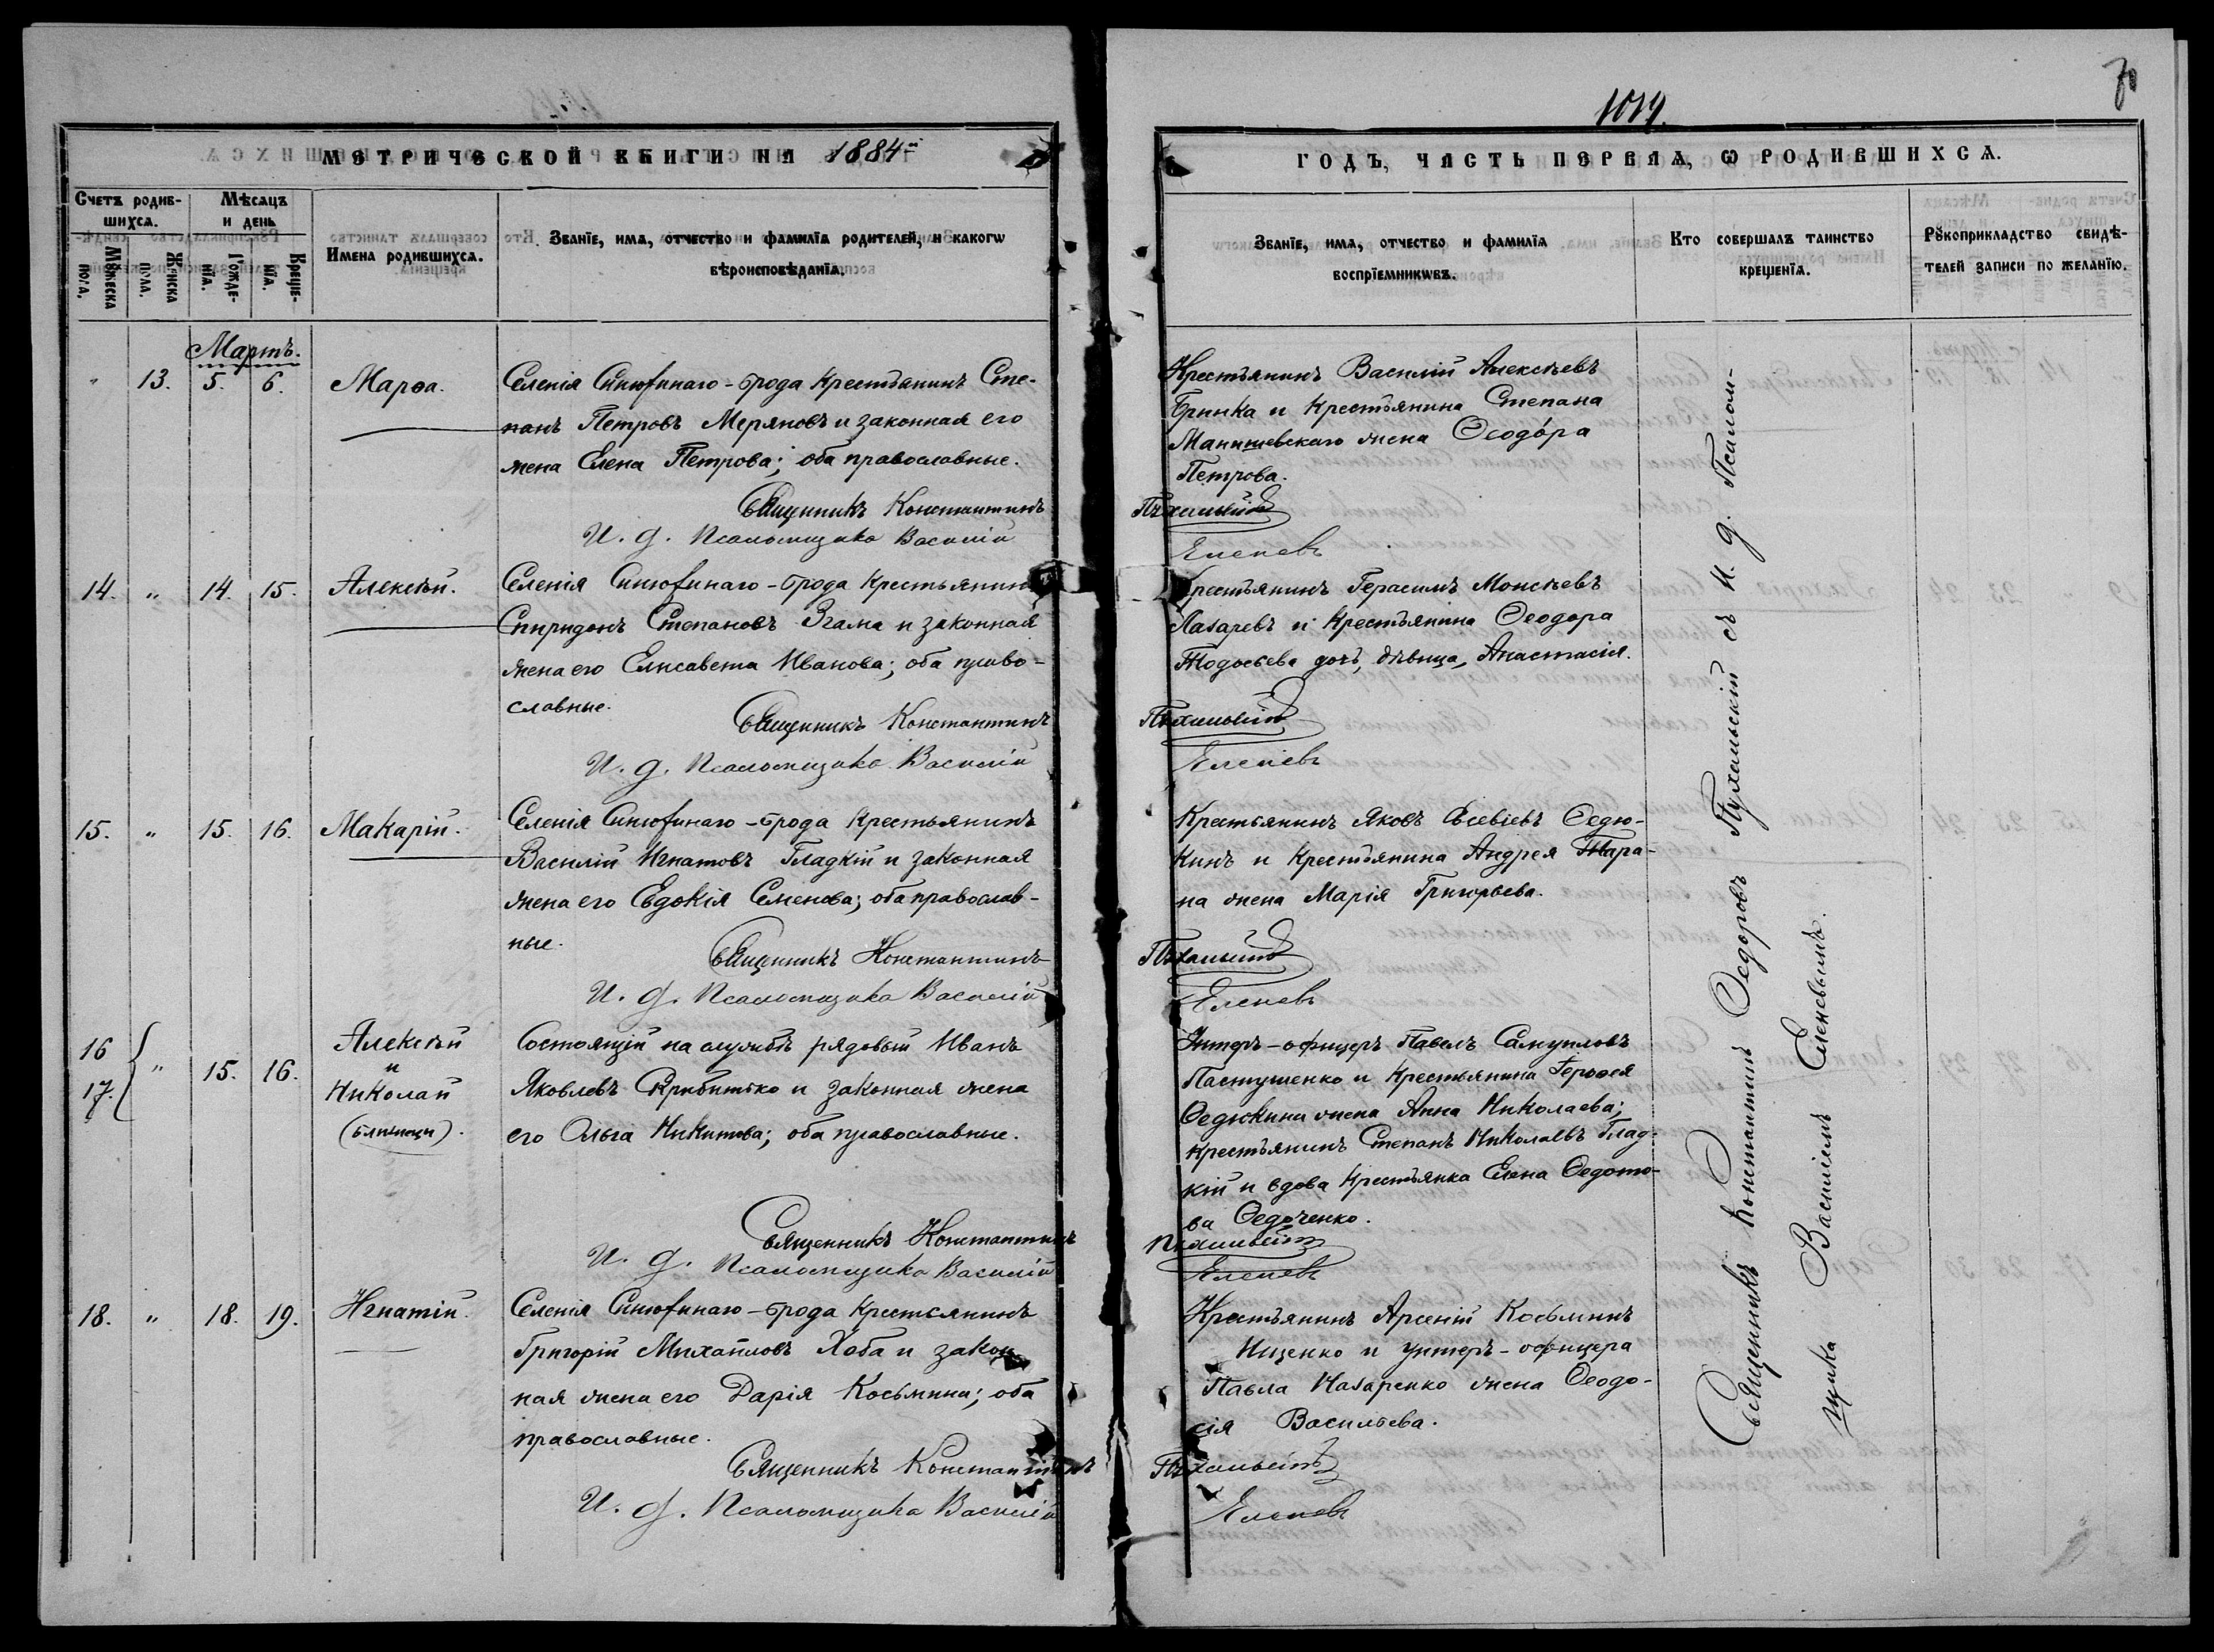 70
1019.
МЕТРИЧЕСКОЙ КНИГИ НА 1884й
ГОДЪ, ЧАСТЬ ПЕРВАЯ, Ѡ РОДИВШИХСѦ.
Счетъ родив-
шихсѧ.
Мѣсѧцъ
и день
Мꙋжеска
пола.
Женска
пола.
Рожде-
нїѧ.
Креще-
нїѧ.
Имена родившихсѧ.
Званїе, имѧ, отчество и фамилїѧ родителей, и какогѡ
вѣроисповѣданїѧ.
Званїе, имѧ, отчество и фамилїѧ
воспрїемникѡвъ.
Кто совершалъ таинство
крещенїѧ.
Рꙋкоприкладство свидѣ-
телей записи по желанїю.
Мартъ.
" 13. 5. 6. Марѳа.
Селенія Синюхинаго-брода крестьянинъ Сте-
панъ Петровъ Меряновъ и законная его
жена Елена Петрова; оба православные.
Священникъ Константинъ
И. д. Псаломщика Василій
Крестьянинъ Василій Алексѣевъ
Бринка и крестьянина Степана
Манишевскаго жена Ѳеодора
Петрова.
Пухальскій
Еленевъ
14. " 14. 15. Алексѣй.
Селенія Синюхинаго-брода крестьянинъ
Спиридонъ Степановъ Згама и законная
жена его Елисавета Иванова; оба право-
славные.
Священникъ Константинъ
И. д. Псаломщика Василій
Крестьянинъ Герасимъ Моисѣевъ
Лазаревъ и крестьянина Ѳеодора
Тодосьева дочь, дѣвица, Анастасія.
Пухальскій
Еленевъ
15. " 15. 16. Макарій.
Селенія Синюхинаго-брода крестьянинъ
Василій Игнатовъ Гладкій и законная
жена его Евдокія Семенова; оба православ-
ные.
Священникъ Константинъ
И. д. Псаломщика Василій
Крестьянинъ Яковъ Евсевіевъ Ѳедю-
кинъ и крестьянина Андрея Тара-
на жена Марія Григорьева.
Пухальскій
Еленевъ
16
17. " 15. 16.
Алексѣй
и
Николай
(близнецы).
Состоящій на службѣ рядовый Иванъ
Яковлевъ и законная жена
его Ольга Никитова; оба православные.
Священникъ Константинъ
И. д. Псаломщика Василій
Унтеръ-офицеръ Павелъ Самуиловъ
Пастушенко и крестьянина Герѳея
Ѳедюкина жена Анна Николаева;
крестьянинъ Степанъ Николаевъ Глад-
кій и вдова крестьянка Елена Ѳедото-
ва Ѳедоченко.
Пухальскій
Еленевъ
18. " 18. 19. Игнатій.
Селенія Синюхинаго-брода крестьянинъ
Григорій Михайловъ Хоба и закон-
ная жена его Дарія Косьмина; оба
православные.
Священникъ Константинъ
И. д. Псаломщика Василій
Крестьянинъ Арсеній Косьминъ
Ищенко и унтеръ-офицера
Павла Назаренко жена Ѳеодо-
сія Васильева.
Пухальскій
Еленевъ
Священникъ Константинъ Ѳедоровъ Пухальскій съ И. д. Псалом-
щика Василіемъ Еленевымъ.